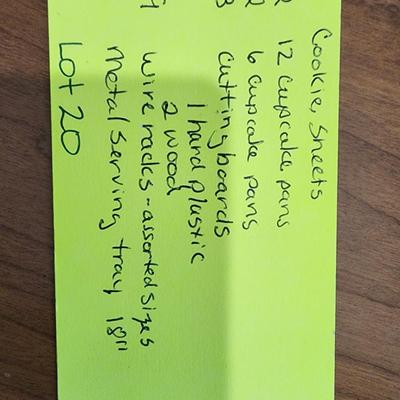 Cookie, Sheets
2 12 cupcake pans
2 6 cupcake pans
3 cutting boards
1 hard plastic
2 wood
4 wire racks - assorted sizes
metal serving tray 18"
Lot 20